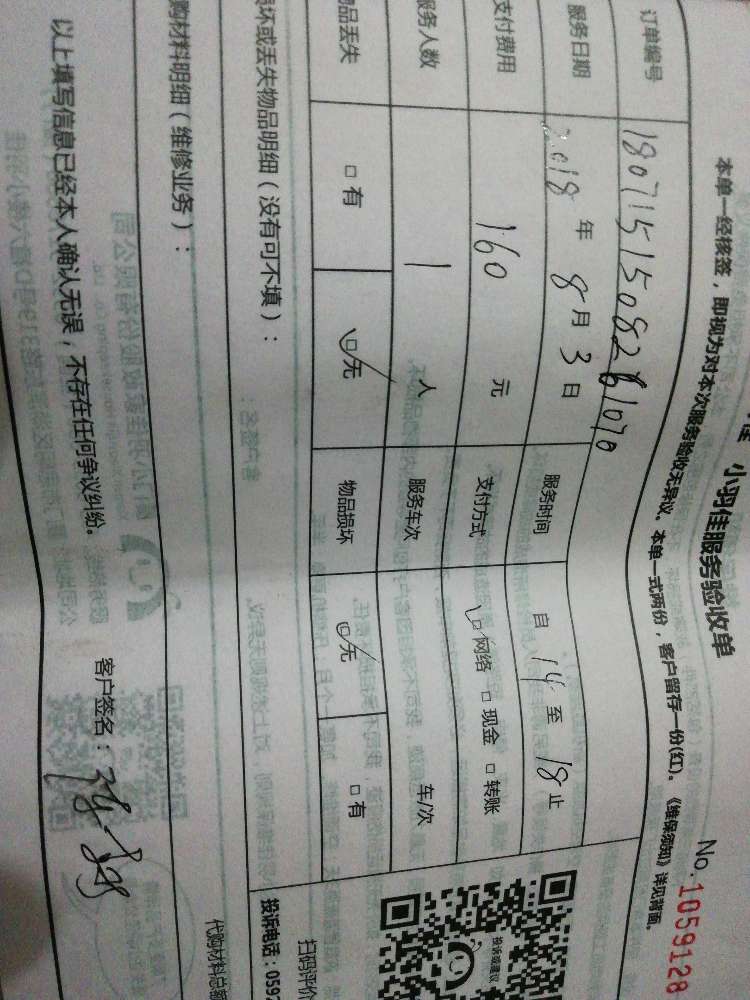 佳 小羽佳服务验收单
No.1059128
本单一经核签，即视为对本次服务验收无异议。本单一式两份，客户留存一份(红)。《维保须知》详见背面。
订单编号 180715150826 1070
服务日期 2018 年 8 月 3 日 服务时间 自 14 至 18 止
支付费用 160 元 支付方式 □网络 □现金 □转账
服务人数 1 人 服务车次 车/次
物品丢失 □有 □无 物品损坏 □无 □有
损坏或丢失物品明细（没有可不填）：
购材料明细（维修业务）：
投诉或建议
扫码评价
投诉电话：0592
代购材料总额
以上填写信息已经本人确认无误，不存在任何争议纠纷。
客户签名：